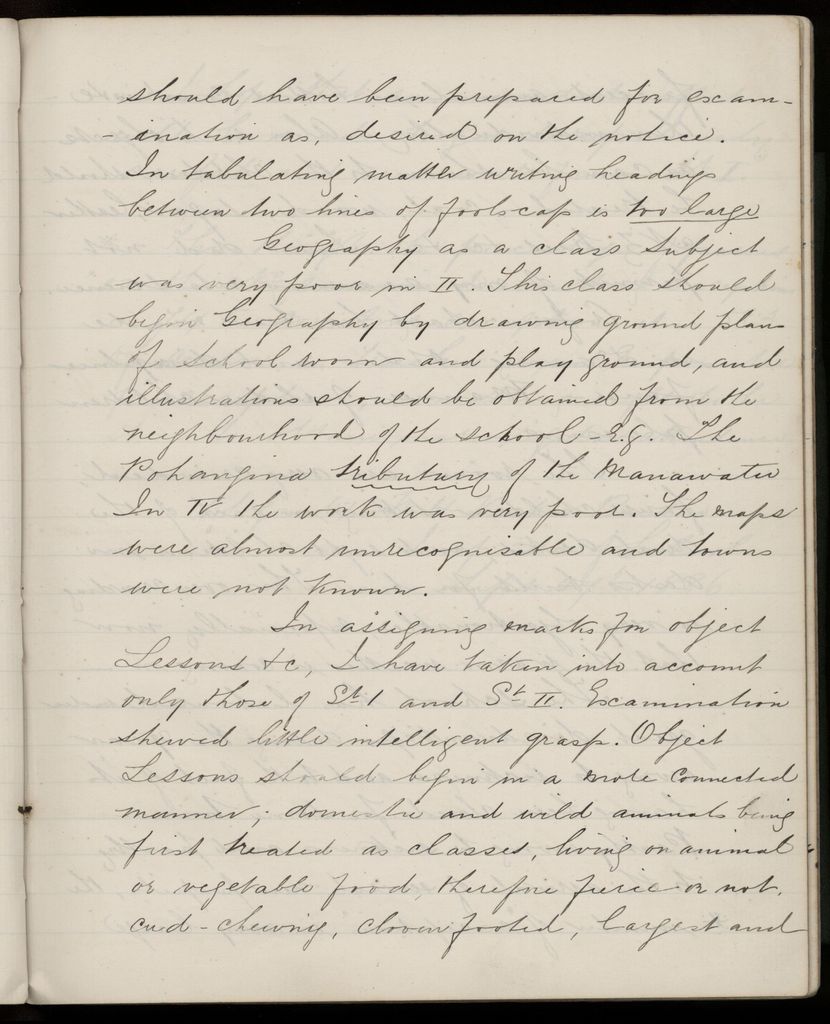 should have been prepared for exam-
-ination as, desired on the notice.
In tabulating matter writing headings
between two lines of foolscap is too large
Geography as a class subject
was very poor in II. This class should
begin Geography by drawing ground plans
of school room and play ground, and
illustrations should be obtained from the
neighbourhood of the school - E.g. The
Pohangina tributary of the Manawatu
In IV the work was very poor. The maps
were almost unrecognisable and towns
were not known.
In assigning marks for object
Lessons &c, I have taken into account
only those of St 1 and St II. Examination
shewed little intelligent grasp. Object
Lessons should begin in a more connected
manner; domestic and wild animals being
first treated as classes, living on animal
or vegetable food, therefore fierce or not,
cud-chewing, cloven footed, largest and